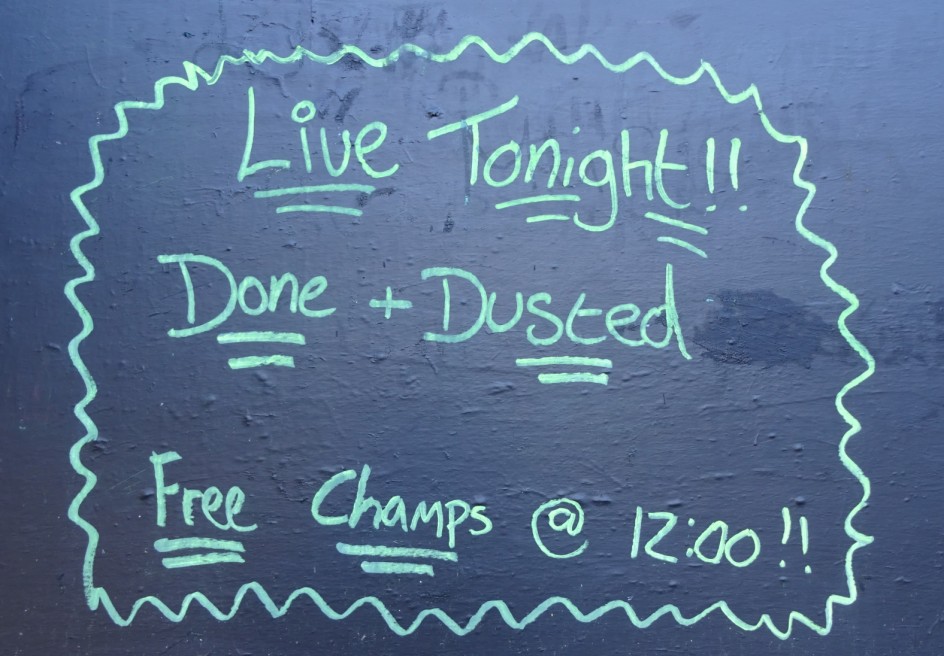 Live Tonight!!
Done + Dusted
Free Champs @ 12:00!!